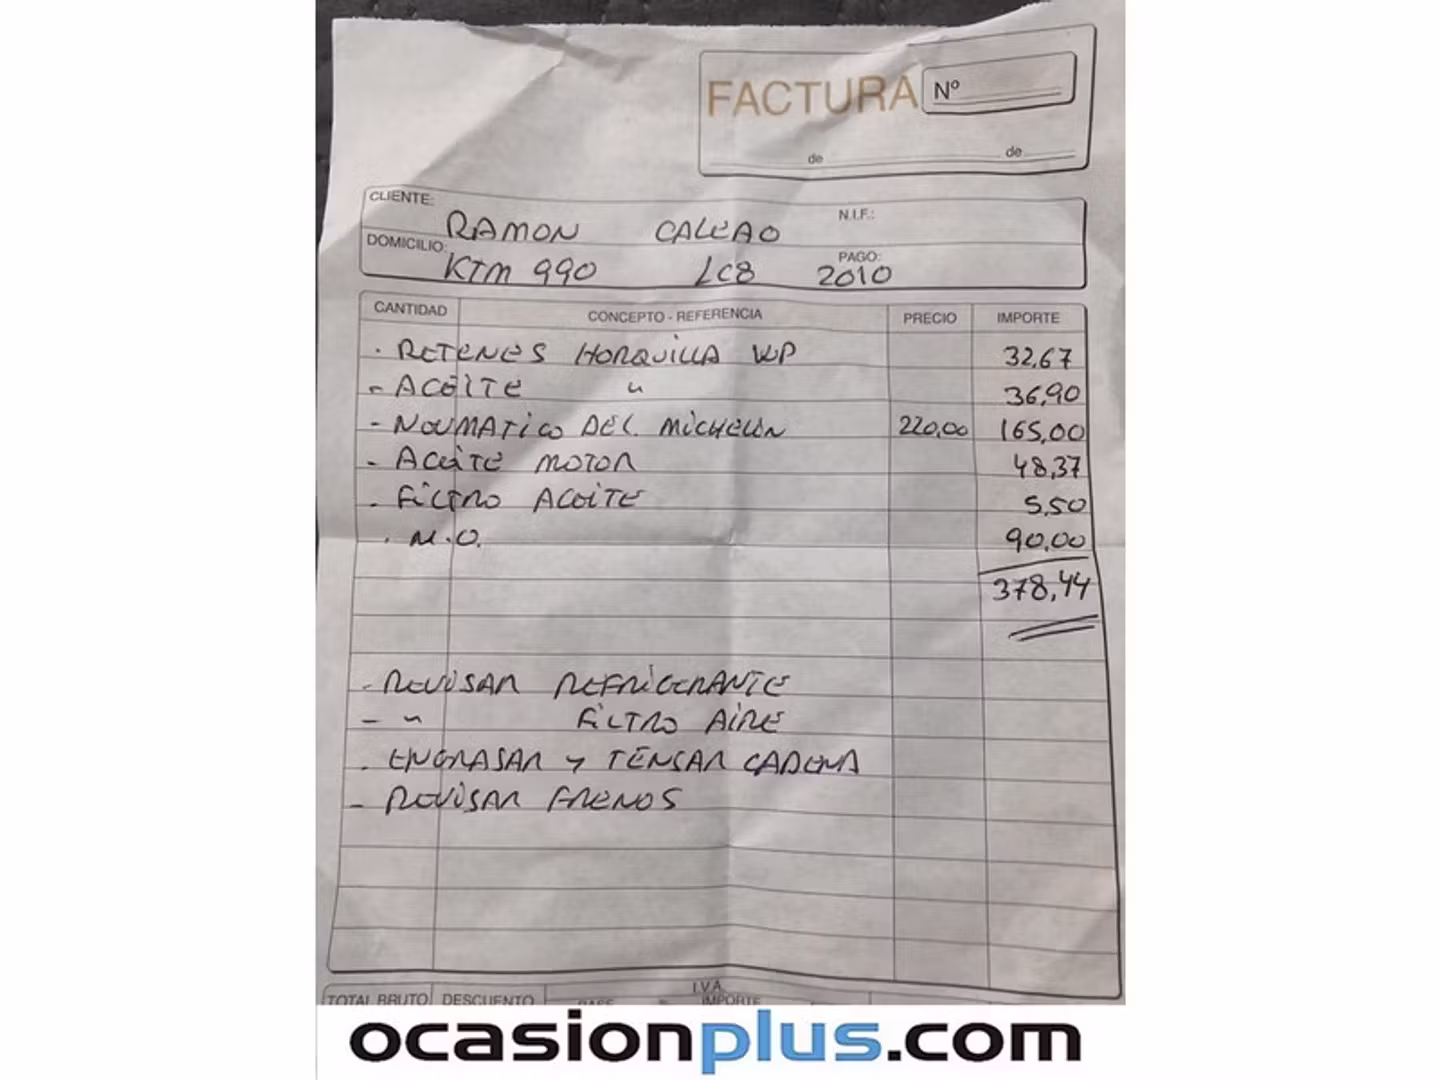 FACTURA Nº
de de
CLIENTE: RAMON CALVAO N.I.F.:
DOMICILIO: KTM 990 LC8 PAGO: 2010
CANTIDAD CONCEPTO - REFERENCIA PRECIO IMPORTE
· RETENES HORQUILLA WP 32,67
- ACEITE " 36,90
- NEUMATICO DEL. MICHELIN 220,00 165,00
- ACEITE MOTOR 48,37
- FILTRO ACEITE 5,50
· M.O. 90,00
378,44
- REVISAR REFRIGERANTE
- " FILTRO AIRE
- ENGRASAR Y TENSAR CADENA
- REVISAR FRENOS
I.V.A.
TOTAL BRUTO DESCUENTO BASE % IMPORTE
ocasionplus.com